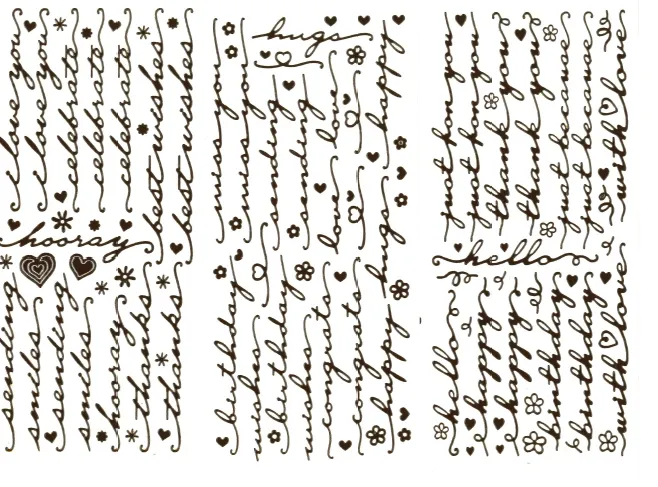 i love you
i love you
celebrate
celebrate
celebrate
best wishes
best wishes
hooray
sending
smiles
sending
smiles
hooray
thanks
thanks
hugs
miss you
miss you
sending
sending
love
love
happy
hugs
birthday
wishes
birthday
wishes
congrats
congrats
happy
just for you
just for you
thank you
thank you
just because
just because
with love
hello
hello
happy
happy
birthday
birthday
with love